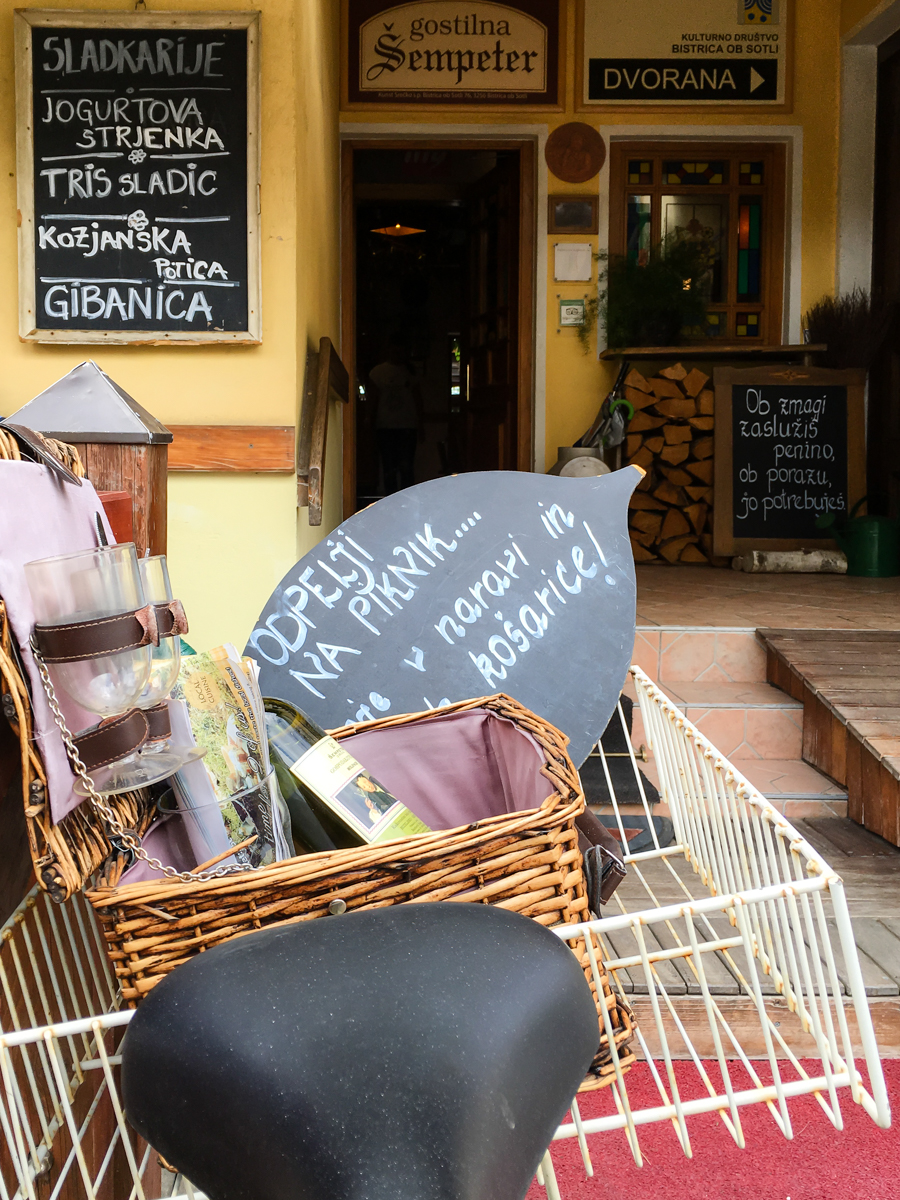 SLADKARIJE
JOGURTOVA
STRJENKA
TRIS SLADIC
KOZJANSKA
POTICA
GIBANICA
gostilna
Šempeter
KULTURNO DRUŠTVO
BISTRICA OB SOTLI
DVORANA
Ob zmagi
zaslužiš
penino,
ob porazu,
jo potrebuješ.
ODPELJI
NA PIKNIK....
v naravi in
košarice!
LOCAL
CUISINE